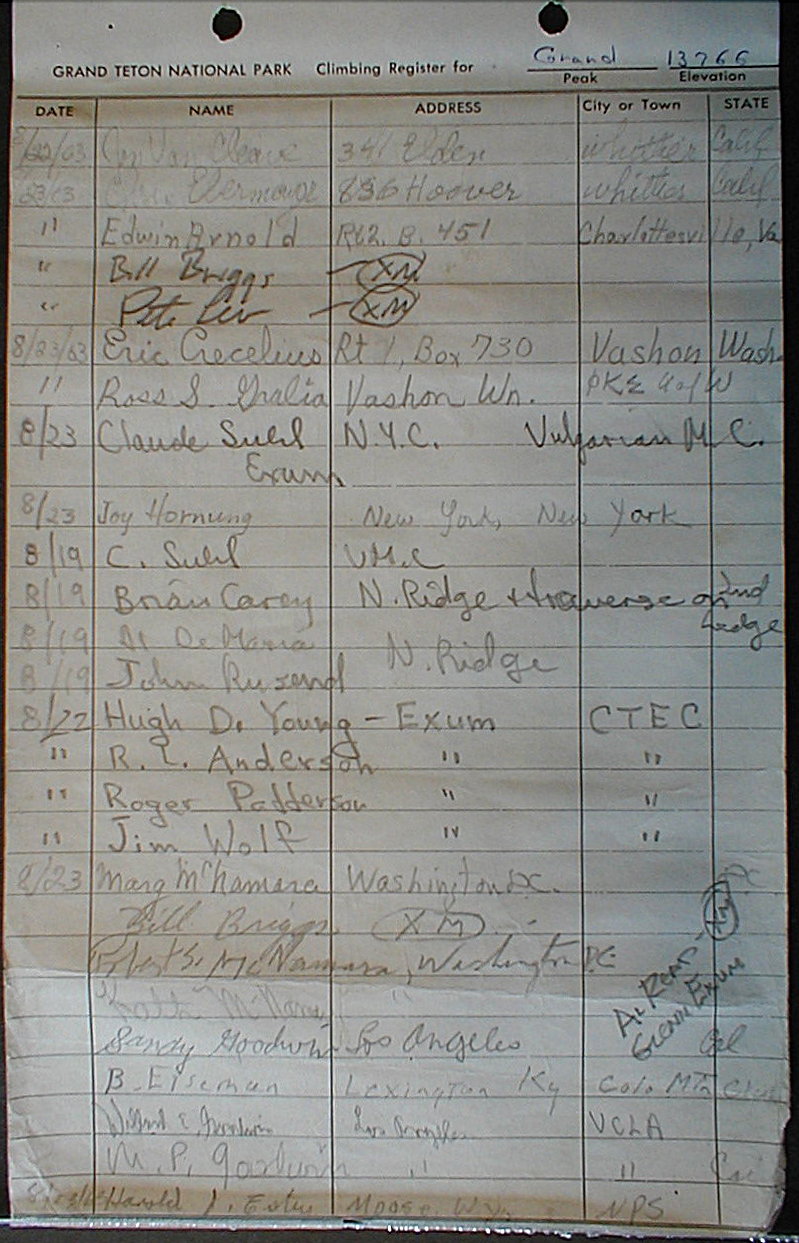 Grand 13766
GRAND TETON NATIONAL PARK Climbing Register for Peak Elevation
DATE NAME ADDRESS City or Town STATE
8/22/63 Van Cleave 341 Elden whittier Calif
23/63 836 Hoover whittier Calif
" Edwin Arnold Rt2. B. 451 Charlottesville, Va
" Bill Briggs — XM
" Pete — XM
8/23/63 Eric Crecelius Rt 1, Box 730 Vashon Wash.
" Ross S. Vashon Wn. U of W
8/23 Claude Suhl N.Y.C. Vulgarian M.C.
Exum
8/23 Joy Hornung New York, New York
8/19 C. Suhl V.M.C
8/19 Brian Carey N. Ridge + traverse on 2nd
Ledge
8/19 Al DeMaria
8/19 John N. Ridge
8/22 Hugh D. Young - Exum CTEC
" R. L. Anderson " "
" Roger Patterson " "
" Jim Wolf " "
8/23 Marg McNamara Washington D.C.
Bill Briggs XM
Robert S. McNamara, Washington DC
McNamara "
Al Read - XM
Glenn Exum
Sandy Goodwin Los Angeles Cal
B. Eiseman Lexington Ky Colo Mtn Club
Goodwin Los Angeles UCLA
M. P. Goodwin " " Cal
Harold J. Estey Moose, Wyo NPS